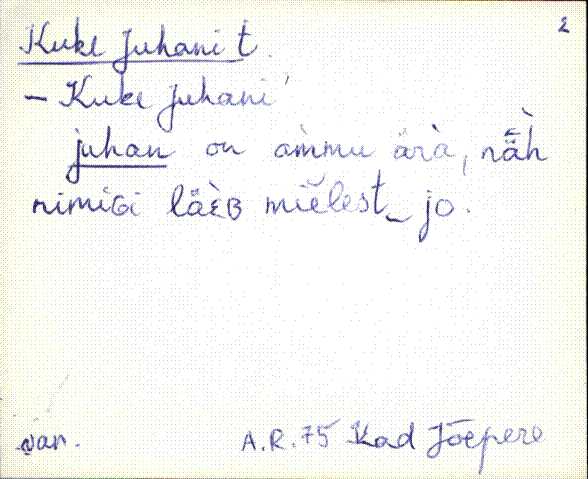 2
Kuke Juhani t.
– Kuke Juhani'
juhan on am̀mu ärà, nä̀h
nimiɢi läὲʙ miĕlest‿jo.
van. A.R. 75 Kad Jõepere